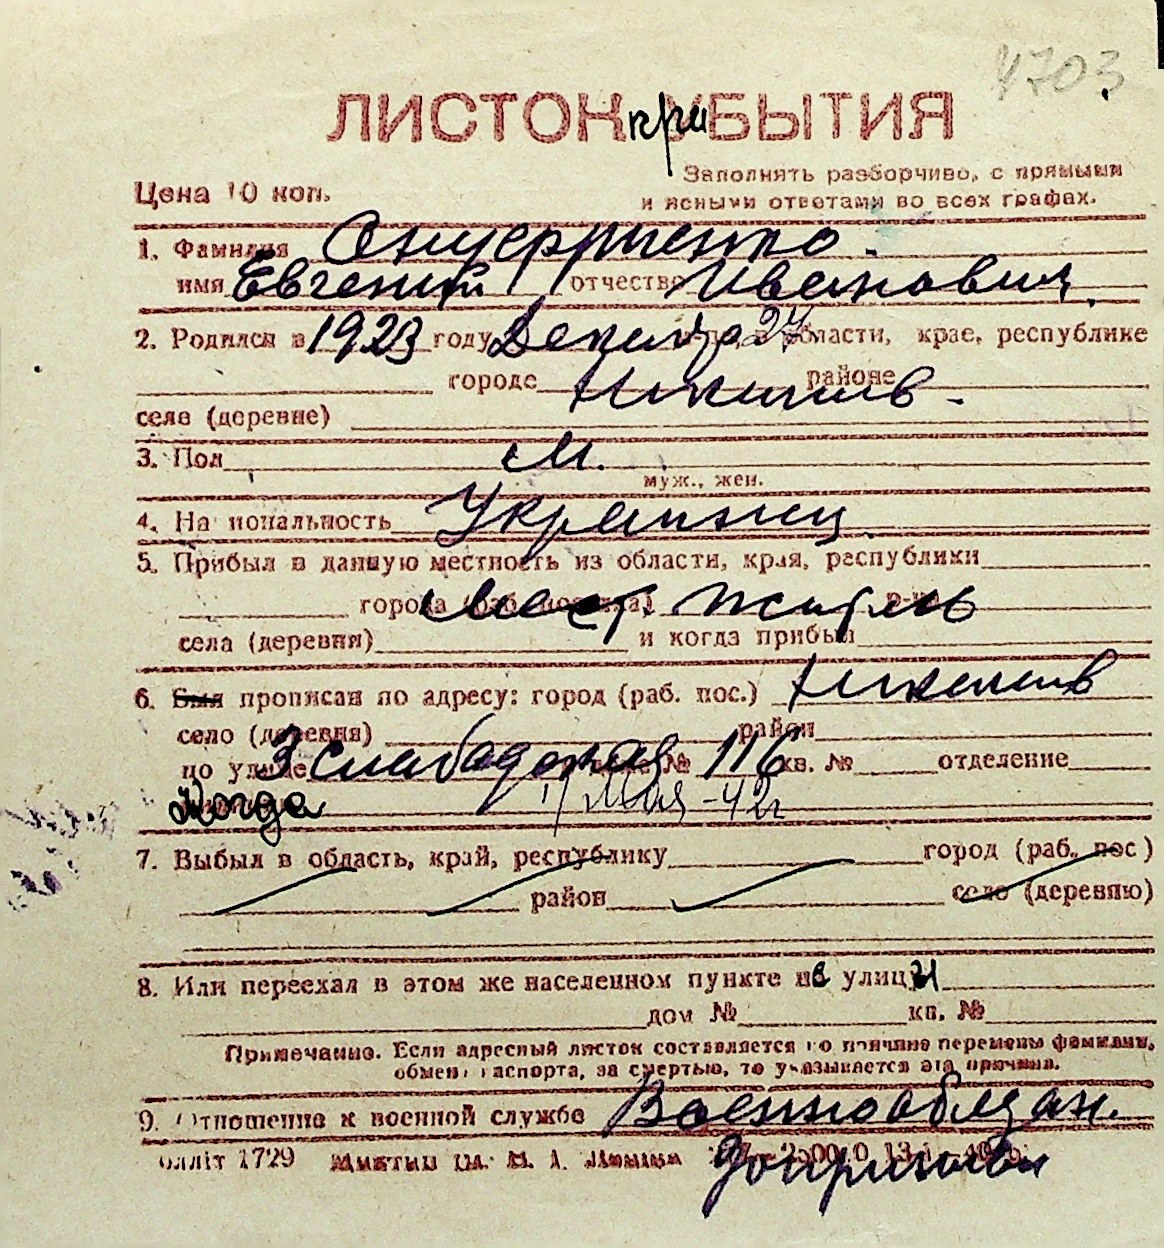 4703
ЛИСТОК при БЫТИЯ
Цена 10 коп.
Заполнять разборчиво, с прямыми
и ясными ответами во всех графах.
1. Фамилия Ануерриенко.
имя Евгений отчество Иванович.
2. Родился в 1923 году Декабря 27 области, крае, республике
городе районе
селе (деревне)
3. Пол м.
муж., жен.
4. На иональность Украинец
5. Прибыл в данную местность из области, края, республики
города Мест. житель
села (деревня) и когда прибыл
6. Был прописан по адресу: город (раб. пос.)
село (деревня) район
по улице 3 слабодская № 116 кв. № отделение
Когда 11 мая -42г
7. Выбыл в область, край, республику город (раб. пос)
район село (деревню)
8. Или переехал в этом же населенном пункте не улицы
дом № кв. №
Примечание. Если адресный листок составляется по причине перемены фамилии,
обмен паспорта, за смертью, то указывается эта причина.
9. Отношение к военной службе Военнообязан.
олліт 1729
допризывн